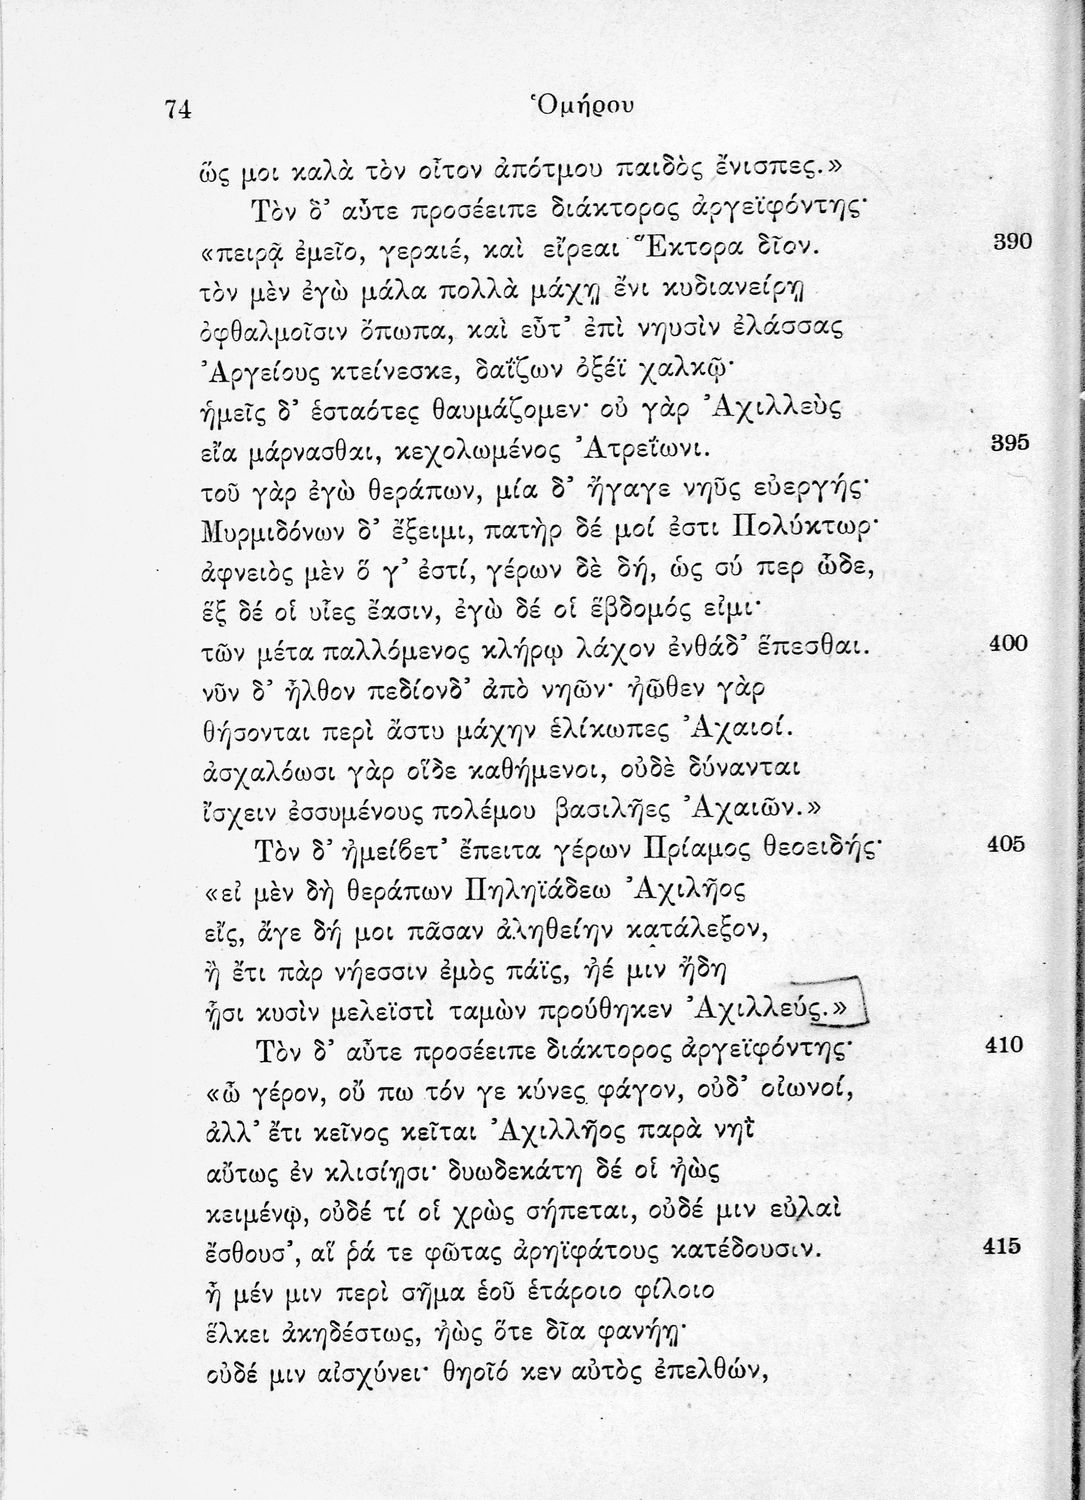 74
Ὁμήρου
ὥς μοι καλὰ τὸν οἶτον ἀπότμου παιδὸς ἔνισπες.»
Τὸν δ’ αὖτε προσέειπε διάκτορος ἀργεϊφόντης·
«πειρᾷ ἐμεῖο, γεραιέ, καὶ εἴρεαι Ἕκτορα δῖον. 390
τὸν μὲν ἐγὼ μάλα πολλὰ μάχῃ ἔνι κυδιανείρῃ
ὀφθαλμοῖσιν ὄπωπα, καὶ εὖτ’ ἐπὶ νηυσὶν ἐλάσσας
Ἀργείους κτείνεσκε, δαΐζων ὀξέϊ χαλκῷ·
ἡμεῖς δ’ ἑσταότες θαυμάζομεν· οὐ γὰρ Ἀχιλλεὺς
εἴα μάρνασθαι, κεχολωμένος Ἀτρεΐωνι. 395
τοῦ γὰρ ἐγὼ θεράπων, μία δ’ ἤγαγε νηῦς εὐεργής·
Μυρμιδόνων δ’ ἔξειμι, πατὴρ δέ μοί ἐστι Πολύκτωρ·
ἀφνειὸς μὲν ὅ γ’ ἐστί, γέρων δὲ δή, ὡς σύ περ ὧδε,
ἕξ δέ οἱ υἷες ἔασιν, ἐγὼ δέ οἱ ἕβδομός εἰμι·
τῶν μέτα παλλόμενος κλήρῳ λάχον ἐνθάδ’ ἕπεσθαι. 400
νῦν δ’ ἦλθον πεδίονδ’ ἀπὸ νηῶν· ἠῶθεν γὰρ
θήσονται περὶ ἄστυ μάχην ἑλίκωπες Ἀχαιοί.
ἀσχαλόωσι γὰρ οἵδε καθήμενοι, οὐδὲ δύνανται
ἴσχειν ἐσσυμένους πολέμου βασιλῆες Ἀχαιῶν.»
Τὸν δ’ ἠμείϐετ’ ἔπειτα γέρων Πρίαμος θεοειδής· 405
«εἰ μὲν δὴ θεράπων Πηληϊάδεω Ἀχιλῆος
εἴς, ἄγε δή μοι πᾶσαν ἀληθείην κατάλεξον,
ἢ ἔτι πὰρ νήεσσιν ἐμὸς πάϊς, ἠέ μιν ἤδη
ᾗσι κυσὶν μελεϊστὶ ταμὼν προύθηκεν Ἀχιλλεύς.»
Τὸν δ’ αὖτε προσέειπε διάκτορος ἀργεϊφόντης· 410
«ὦ γέρον, οὔ πω τόν γε κύνες φάγον, οὐδ’ οἰωνοί,
ἀλλ’ ἔτι κεῖνος κεῖται Ἀχιλλῆος παρὰ νηῒ
αὔτως ἐν κλισίῃσι· δυωδεκάτη δέ οἱ ἠὼς
κειμένῳ, οὐδέ τί οἱ χρὼς σήπεται, οὐδέ μιν εὐλαὶ
ἔσθουσ’, αἵ ῥά τε φῶτας ἀρηϊφάτους κατέδουσιν. 415
ἦ μέν μιν περὶ σῆμα ἑοῦ ἑτάροιο φίλοιο
ἕλκει ἀκηδέστως, ἠὼς ὅτε δῖα φανήῃ·
οὐδέ μιν αἰσχύνει· θηοῖό κεν αὐτὸς ἐπελθών,